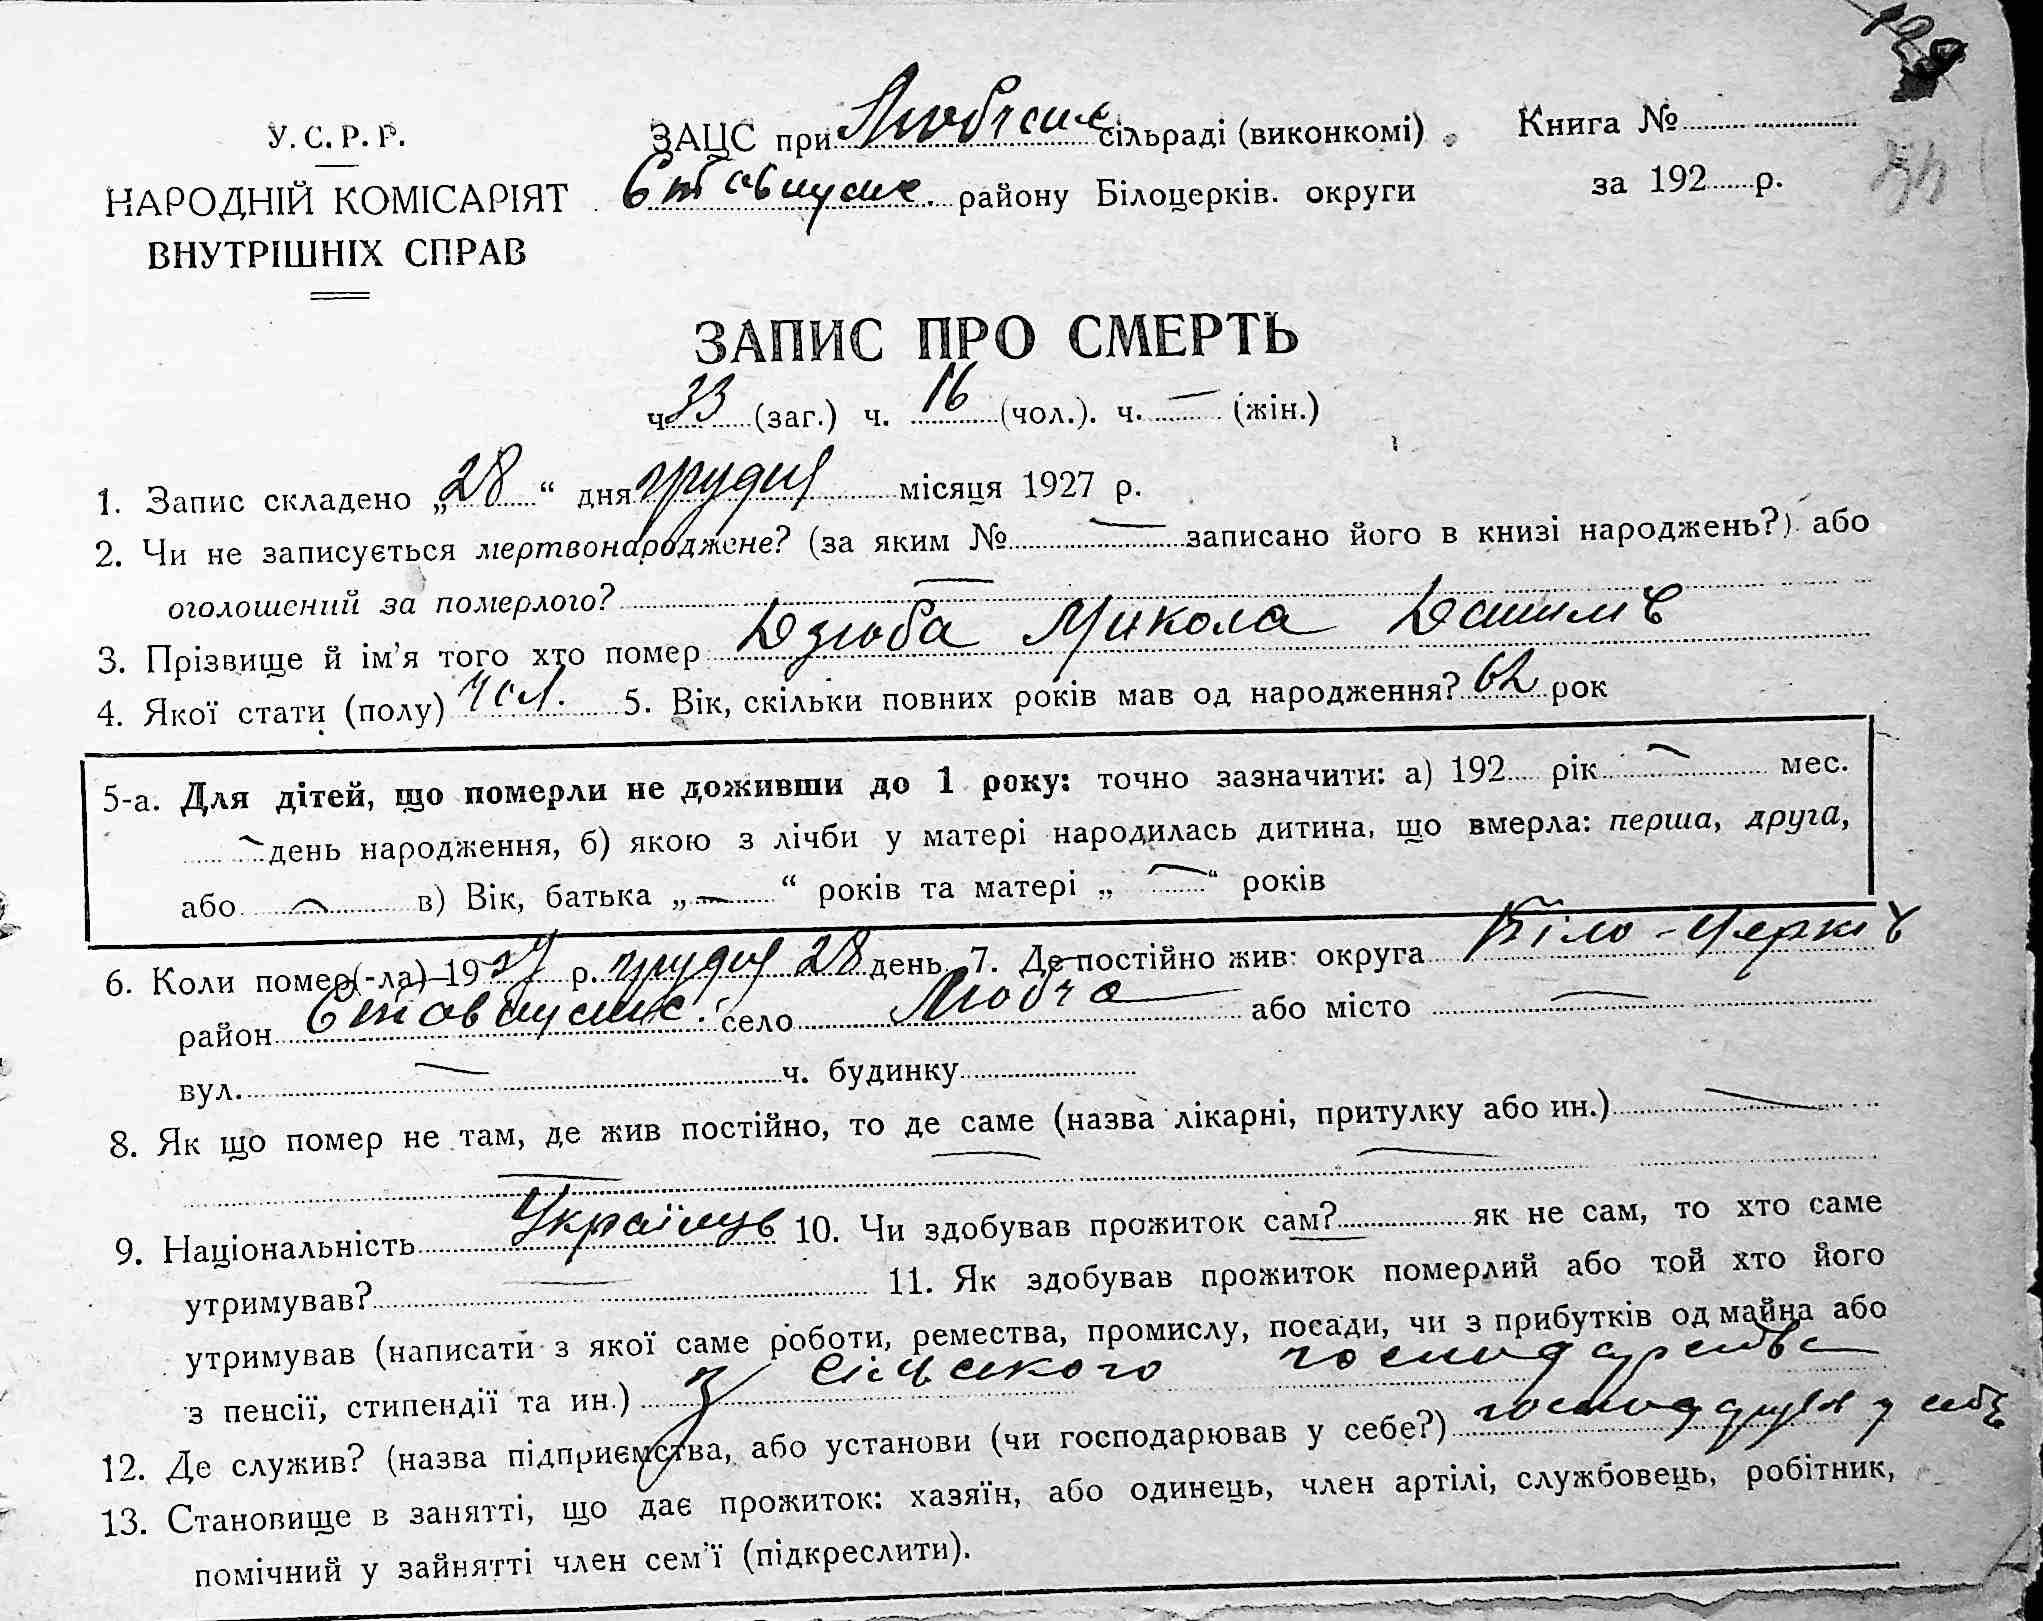 У. С. Р. Р.
НАРОДНІЙ КОМІСАРІЯТ
ВНУТРІШНІХ СПРАВ
ЗАЦС при Любчсик сільраді (виконкомі)
Ставищсик. району Білоцерків. округи
Книга №
за 192 р.
ЗАПИС ПРО СМЕРТЬ
ч. 33 (заг.) ч. 16 (чол.). ч. — (жін.)
1. Запис складено „28“ дня грудня місяця 1927 р.
2. Чи не записується мертвонароджене? (за яким № — записано його в книзі народжень?) або
оголошений за померлого? —
3. Прізвище й ім'я того хто помер Дзюба Микола
4. Якої стати (полу) чол. 5. Вік, скільки повних років мав од народження? 62 рок
5-а. Для дітей, що померли не доживши до 1 року: точно зазначити: а) 192 рік — мес.
— день народження, б) якою з лічби у матері народилась дитина, що вмерла: перша, друга,
або — в) Вік, батька „—“ років та матері „—“ років
6. Коли помер(-ла) 1927 р. грудня 28 день 7. Де постійно жив: округа Біло-Церків
район Ставищсик. село Любча або місто —
вул. — ч. будинку
8. Як що помер не там, де жив постійно, то де саме (назва лікарні, притулку або ин.) —
— — —
9. Національність Українець 10. Чи здобував прожиток сам? як не сам, то хто саме
утримував? — 11. Як здобував прожиток померлий або той хто його
утримував (написати з якої саме роботи, ремества, промислу, посади, чи з прибутків од майна або
з пенсії, стипендії та ин.) З сільського господарства
12. Де служив? (назва підприємства, або установи (чи господарював у себе?) у себе
13. Становище в занятті, що дає прожиток: хазяїн, або одинець, член артілі, службовець, робітник,
помічний у зайнятті член сем'ї (підкреслити).